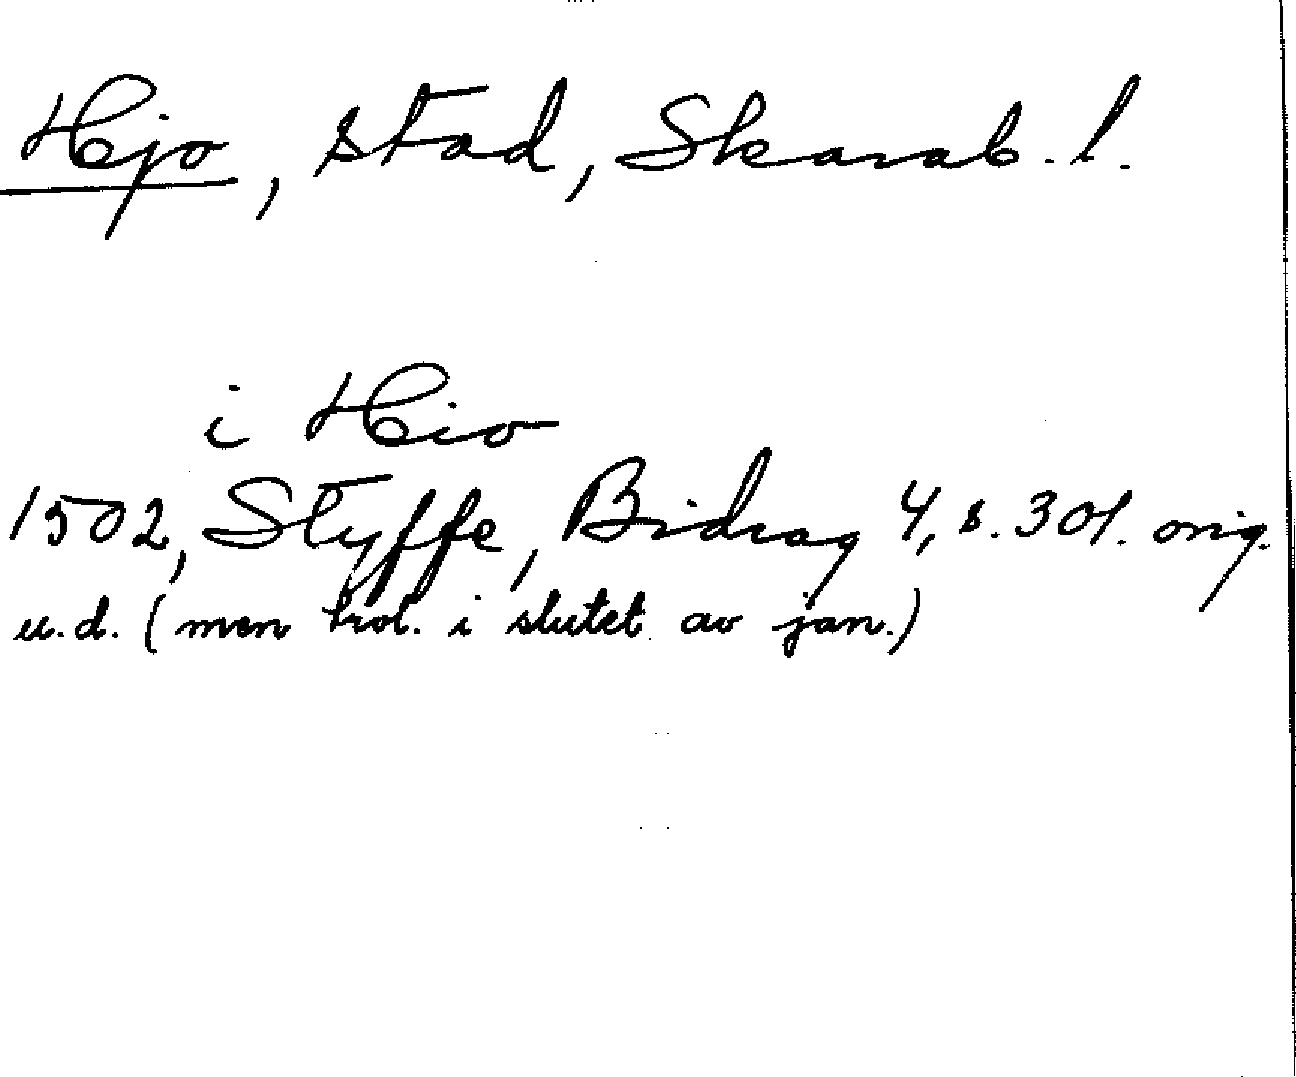 Hjo, stad, Skarab. l.
i Hio
1502, Styffe, Bidrag 4, s. 301. orig.
u.d. (men trol. i slutet av jan.)